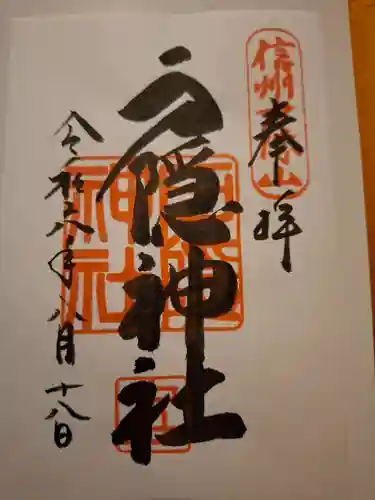 信州戸隠山
奉拝
戸隠神社
戸隠
神社
令和六年八月十八日